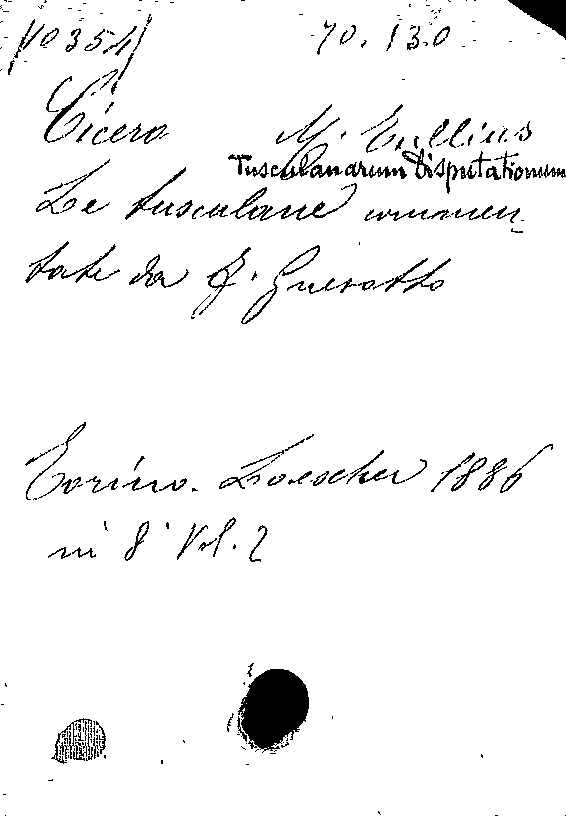 10354 70.13.0
Cicero M. Tullius
Tusculanarum Disputationum
Le tusculane commen-
tate da G. Gnesotto
Torino. Loescher 1886
in 8° Vol. 2